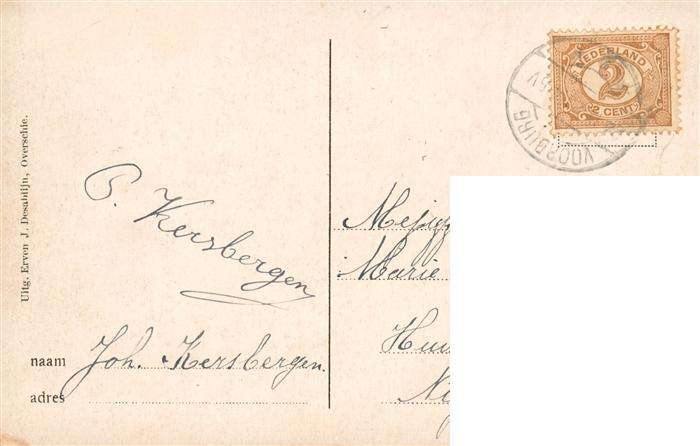 Uitg. Erven J. Desablijn, Overschie.
P. Kersbergen
naam Joh. Kersbergen.
adres
NEDERLAND
2
2 CENT
VOORBURG
Marie